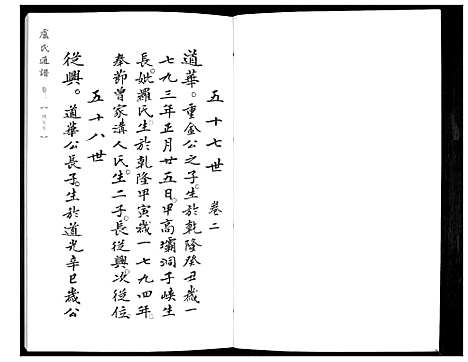 五十七世　卷二
道華。重金公之子。生於乾隆癸丑歲一
七九三年正月廿五日。甲高壩洞子峽生
長。妣羅氏生於乾隆甲寅歲一七九四年。
奉節曾家溝人氏。生二子。長從興。次從位
五十八世
從興。道華公長子。生於道光辛巳歲公
盧氏通譜　卷